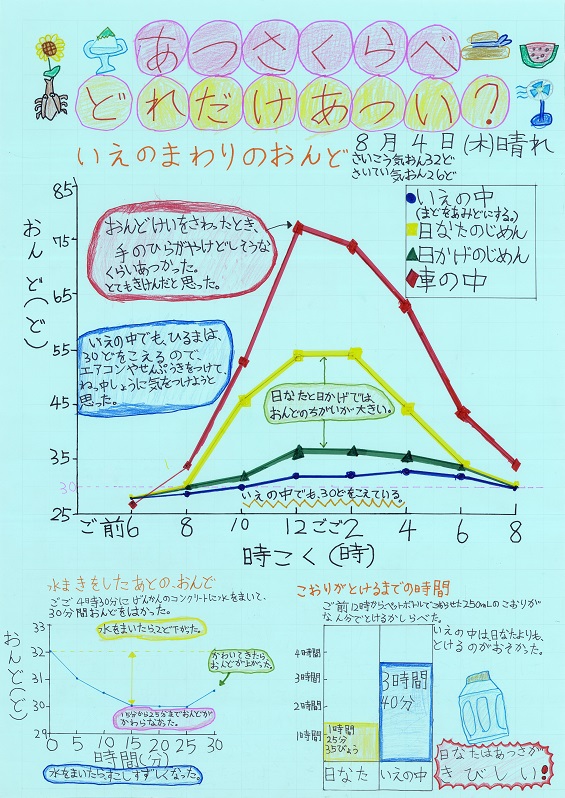 あつさくらべ
どれだけあつい?
いえのまわりのおんど
8月4日(木)晴れ
さいこう気おん32ど
さいてい気おん26ど
いえの中
(まどをあみどにする。)
日なたのじめん
日かげのじめん
車の中
おんど(ど)
85
75
65
55
45
35
30
25
おんどけいをさわったとき、
手のひらがやけどしそうな
くらいあつかった。
とてもきけんだと思った。
いえの中でも、ひるまは、
30どをこえるので、
エアコンやせんぷうきをつけて、
ねっ中しょうに気をつけようと
思った。
日なたと日かげでは、
おんどのちがいが大きい。
いえの中でも、30どをこえている。
ご前6 8 10 12 ごご2 4 6 8
時こく(時)
水まきをしたあとの、おんど
ごご4時30分にげんかんのコンクリートに水をまいて、
30分間おんどをはかった。
おんど(ど)
33
32
31
30
29
水をまいたら2ど下がった。
かわいてきたら
おんどが上がった。
15分から25分までおんどが
かわらなかった。
0 5 10 15 20 25 30
時間(分)
水をまいたら、すこしすずしくなった。
こおりがとけるまでの時間
ご前12時からペットボトルでこおらせた250mLのこおりが
なん分でとけるかしらべた。
いえの中は日なたよりも、
とけるのがおそかった。
4時間
3時間
2時間
1時間
1時間
25分
35びょう
3時間
40分
日なた いえの中
日なたはあつさが
きびしい!